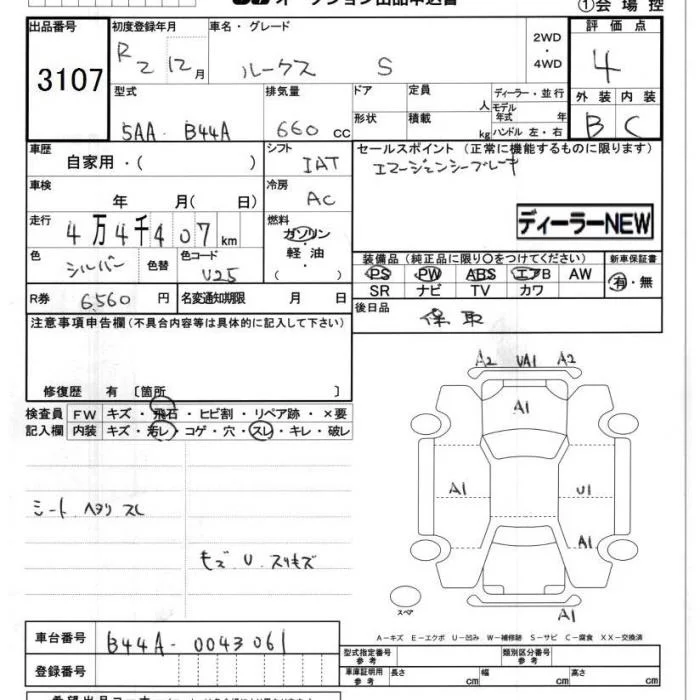 オークション出品申込書
①会場控
出品番号 3107
初度登録年月 R2 12月
車名・グレード ルークス S
2WD・4WD
評価点 4
外装 B 内装 C
型式 5AA-B44A
排気量 660 cc
ドア 形状
定員 人
積載 kg
ディーラー・並行
モデル年式 年
ハンドル 左・右
車歴 自家用・( )
シフト IAT
セールスポイント (正常に機能するものに限ります)
エマージェンシーブレーキ
車検 年 月( 日)
冷房 AC
ディーラーNEW
走行 4万4千407km
燃料 ガソリン・軽油 ( )
色 シルバー 色替
色コード U25
装備品 (純正品に限り○をつけてください)
新車保証書 有・無
PS PW ABS エアB AW
SR ナビ TV カワ
R券 6,560 円
名変通知期限 月 日
後日品 保 取
注意事項申告欄(不具合内容等は具体的に記入して下さい)
修復歴 有 〔箇所 〕
検査員記入欄
FW キズ・飛石・ヒビ割・リペア跡・×要
内装 キズ・汚レ・コゲ・穴・スレ・キレ・破レ
A2 UA1 A2
A1
A1 U1
A1
シート ヘタリ スレ
キズ U スリキズ
スペア
A1
A-キズ E-エクボ U-凹み W-補修跡 S-サビ C-腐食 XX-交換済
車台番号 B44A-0043061
登録番号
型式指定番号 参考
類別区分番号 参考
車庫証明用 参考 長さ cm 幅 cm 高さ cm